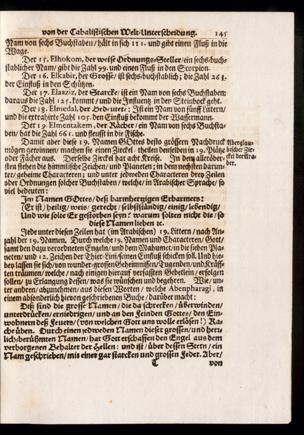 von der Cabalistischen Welt-Unterscheidung. 145
Nam von sechs Buchstaben/ hält in sich 111. und gibt einen Fluß in die
Wage.
Der 15. Elhokom, der weise Ordnungs-Steller/ein sechs-buch-
stablicher Nam/ gibt die Zahl 99. und einen Fluß in den Scorpion.
Der 16. Elkabir, der Grosse/ ist sechs-buchstablich; die Zahl 263.
der Einfluß in den Schützen.
Der 17. Elaaziz, der Starcke: ist ein Nam von sechs Buchstaben:
daraus die Zahl 125. kommt/ und die Influentz in der Steinbock geht.
Der 18. Ist ein Nam von fünff Littern/
und die ertrahirte Zahl 105. den Einfluß bekommt der Wassermann.
Der 19. Elmentakem, der Rächer/ ein Nam von sechs Buchsta-
ben/ hat die Zahl 661. und fleußt in die Fische.
Damit aber diese 19. Namen GOttes desto grössern Nachdruck
mögen gewinnen/ machen sie einen Zirckel/ theilen denselben in 19. Plätze
oder Fächer aus. Derselbe Zirckel hat acht Kreise. In dem allerober-
sten stehen die himmlische Zeichen/ und Planeten; in dem nechsten darun-
ter/ geheime Characteren; und unter jedweden Characteren drey Zeilen
oder Ordnungen solcher Buchstaben/ welche/ in Arabischer Sprache/ so
viel bedeuten:
Im Namen GOttes/ deß barmhertzigen Erbarmers:
Er ist/ heilig/ weis/ gerecht/ selbstständig/ einig/ lebendig/
Und wie solte Er gestorben seyn? warum solten nicht die/ so
diese Namen lieben ꝛc.
Jede unter diesen Zeilen hat (im Arabischen) 19. Littern/ nach An-
zahl der 19. Namen. Durch welche 19. Namen und Characteren/ Gott/
samt den dazu verordneten Engeln/ und den Mahnern/ in die sieben Pla-
neten/ und 12. Zeichen deß Thier-Kreises Einfluß schicken soll. Und hie-
bey lassen sie sich/ von wunder-grossen Geheimnissen/ Tugenden und Kräff-
ten träumen/ welche/ nach einigen hierauf verfaßten Gebetlein/ erfolgen
sollen/ zu Erlangung dessen/ was sie wünschen und begehren. Wie/ un-
ter andren/ abzunehmen/ aus diesen Worten/ welche Abenpharagi, in
einem absonderlich hievon geschriebenen Buche/ darüber macht:
Diß sind die grosse Namen/ die da schrecken/ überwinden/
unterdrucken/ erniedrigen/ und an den Feinden Gottes/ den Ein-
wohnern des Feuers/ (von welchen Gott uns wolle erlösen!) Ra-
che üben. Durch einen jedweden Namen dieser grossen/ und herr-
lich-berühmten Namen/ hat Gott erschaffen den Engel aus dem
verborgenen Behalter der Hellen: und ist/ über dessen Stern/ ein
Nam geschrieben/ mit einer gar starcken und grossen Feder. Aber/
T von